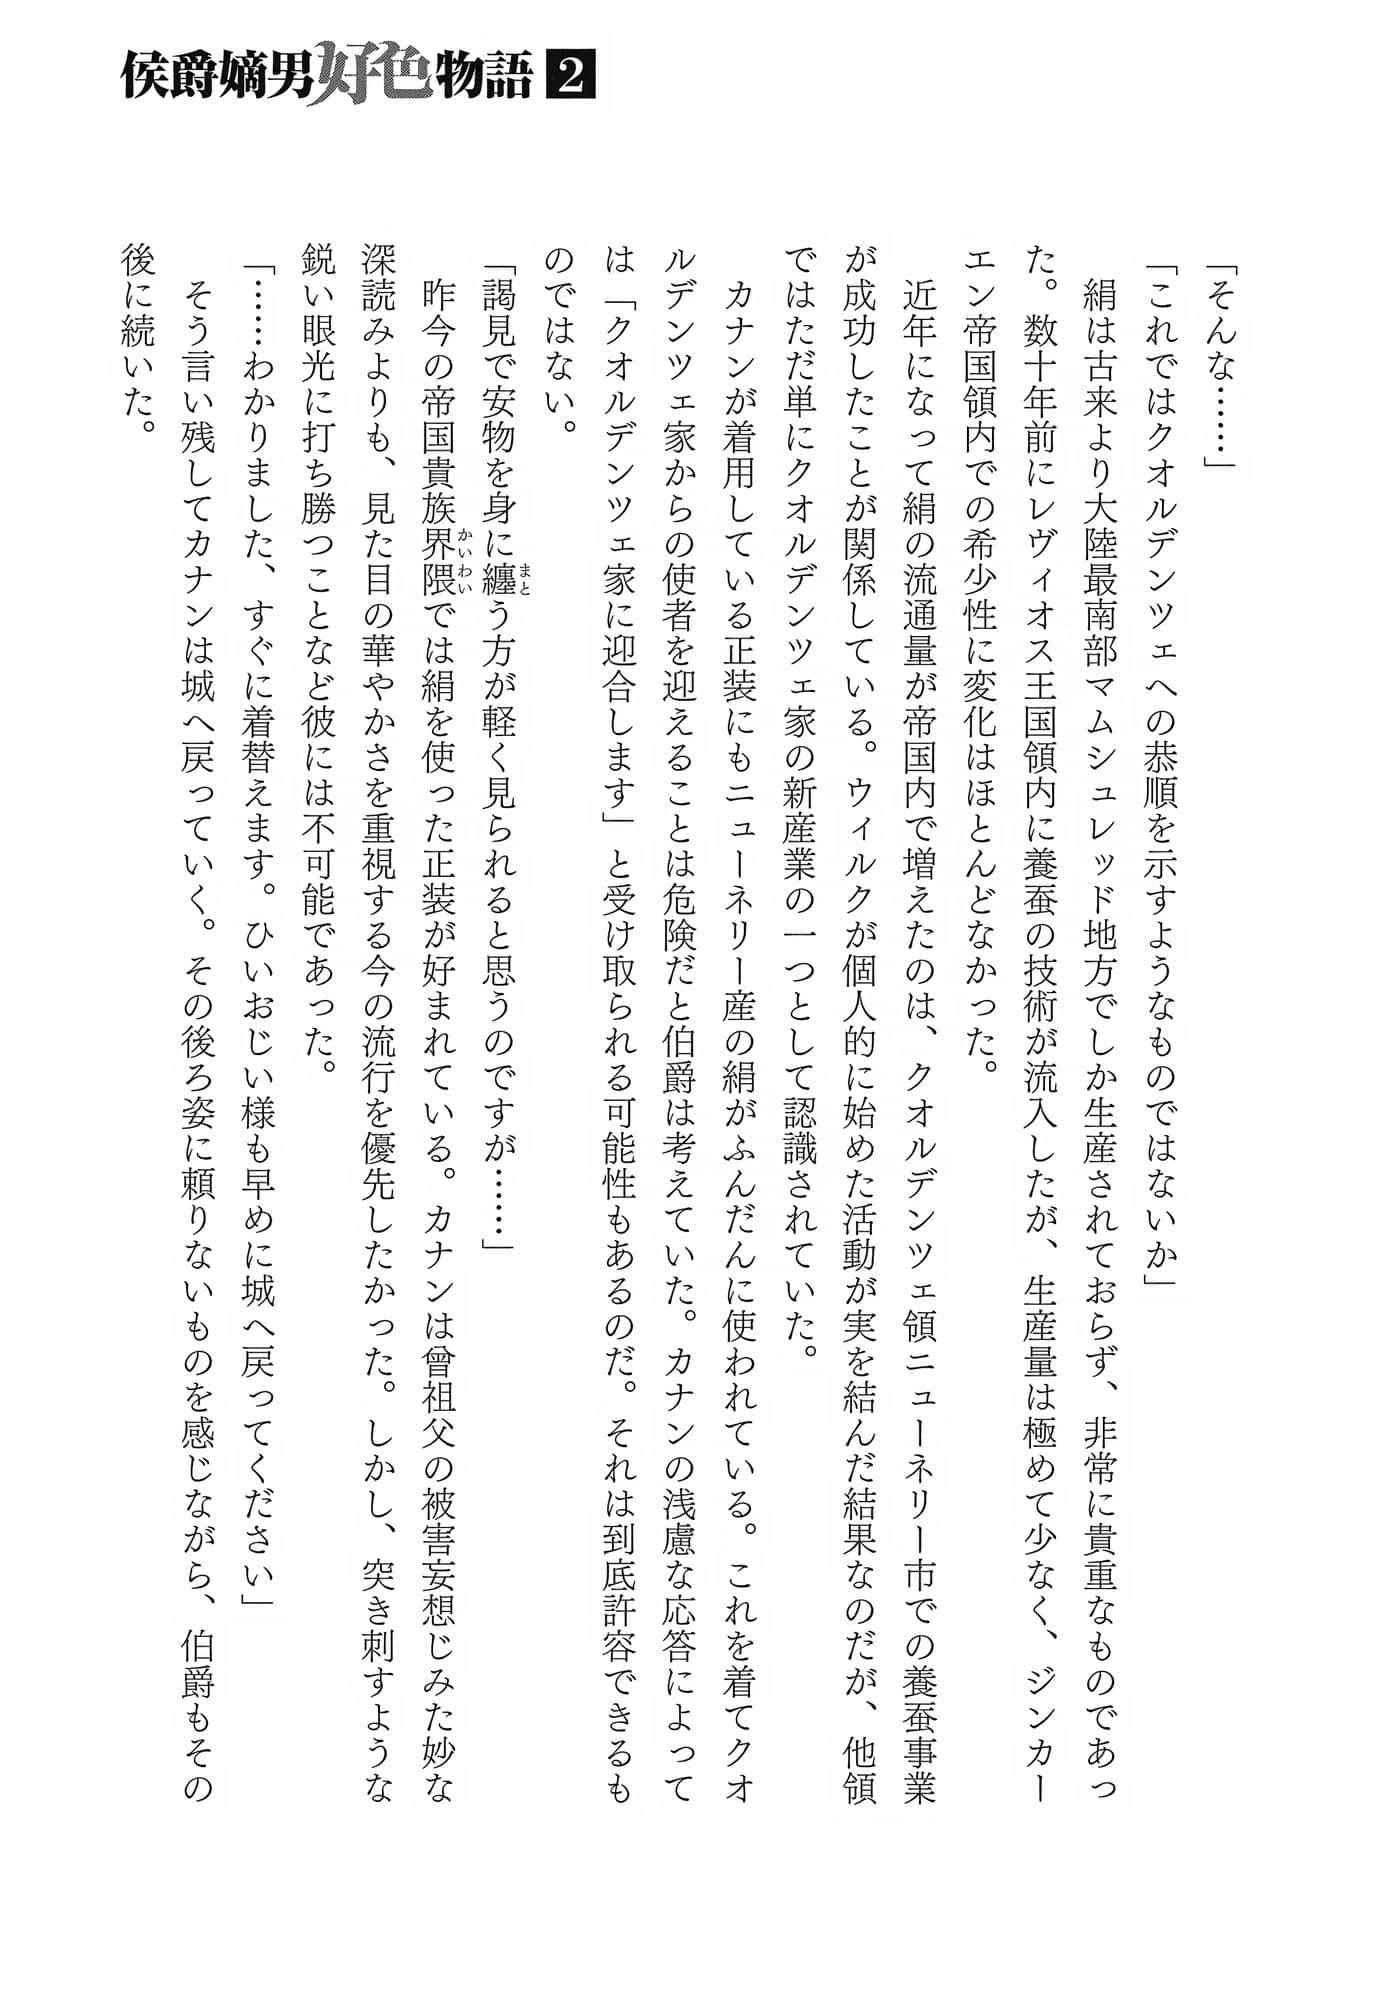 侯爵嫡男好色物語 2
「そんな……」
「これではクオルデンツェへの恭順を示すようなものではないか」
　絹は古来より大陸最南部マムシュレッド地方でしか生産されておらず、非常に貴重なものであっ
た。数十年前にレヴィオス王国領内に養蚕の技術が流入したが、生産量は極めて少なく、ジンカー
エン帝国領内での希少性に変化はほとんどなかった。
　近年になって絹の流通量が帝国内で増えたのは、クオルデンツェ領ニューネリー市での養蚕事業
が成功したことが関係している。ウィルクが個人的に始めた活動が実を結んだ結果なのだが、他領
ではただ単にクオルデンツェ家の新産業の一つとして認識されていた。
　カナンが着用している正装にもニューネリー産の絹がふんだんに使われている。これを着てクオ
ルデンツェ家からの使者を迎えることは危険だと伯爵は考えていた。カナンの浅慮な応答によって
は「クオルデンツェ家に迎合します」と受け取られる可能性もあるのだ。それは到底許容できるも
のではない。
「謁見で安物を身に纏う方が軽く見られると思うのですが……」
　昨今の帝国貴族界隈では絹を使った正装が好まれている。カナンは曾祖父の被害妄想じみた妙な
深読みよりも、見た目の華やかさを重視する今の流行を優先したかった。しかし、突き刺すような
鋭い眼光に打ち勝つことなど彼には不可能であった。
「……わかりました、すぐに着替えます。ひいおじい様も早めに城へ戻ってください」
　そう言い残してカナンは城へ戻っていく。その後ろ姿に頼りないものを感じながら、伯爵もその
後に続いた。